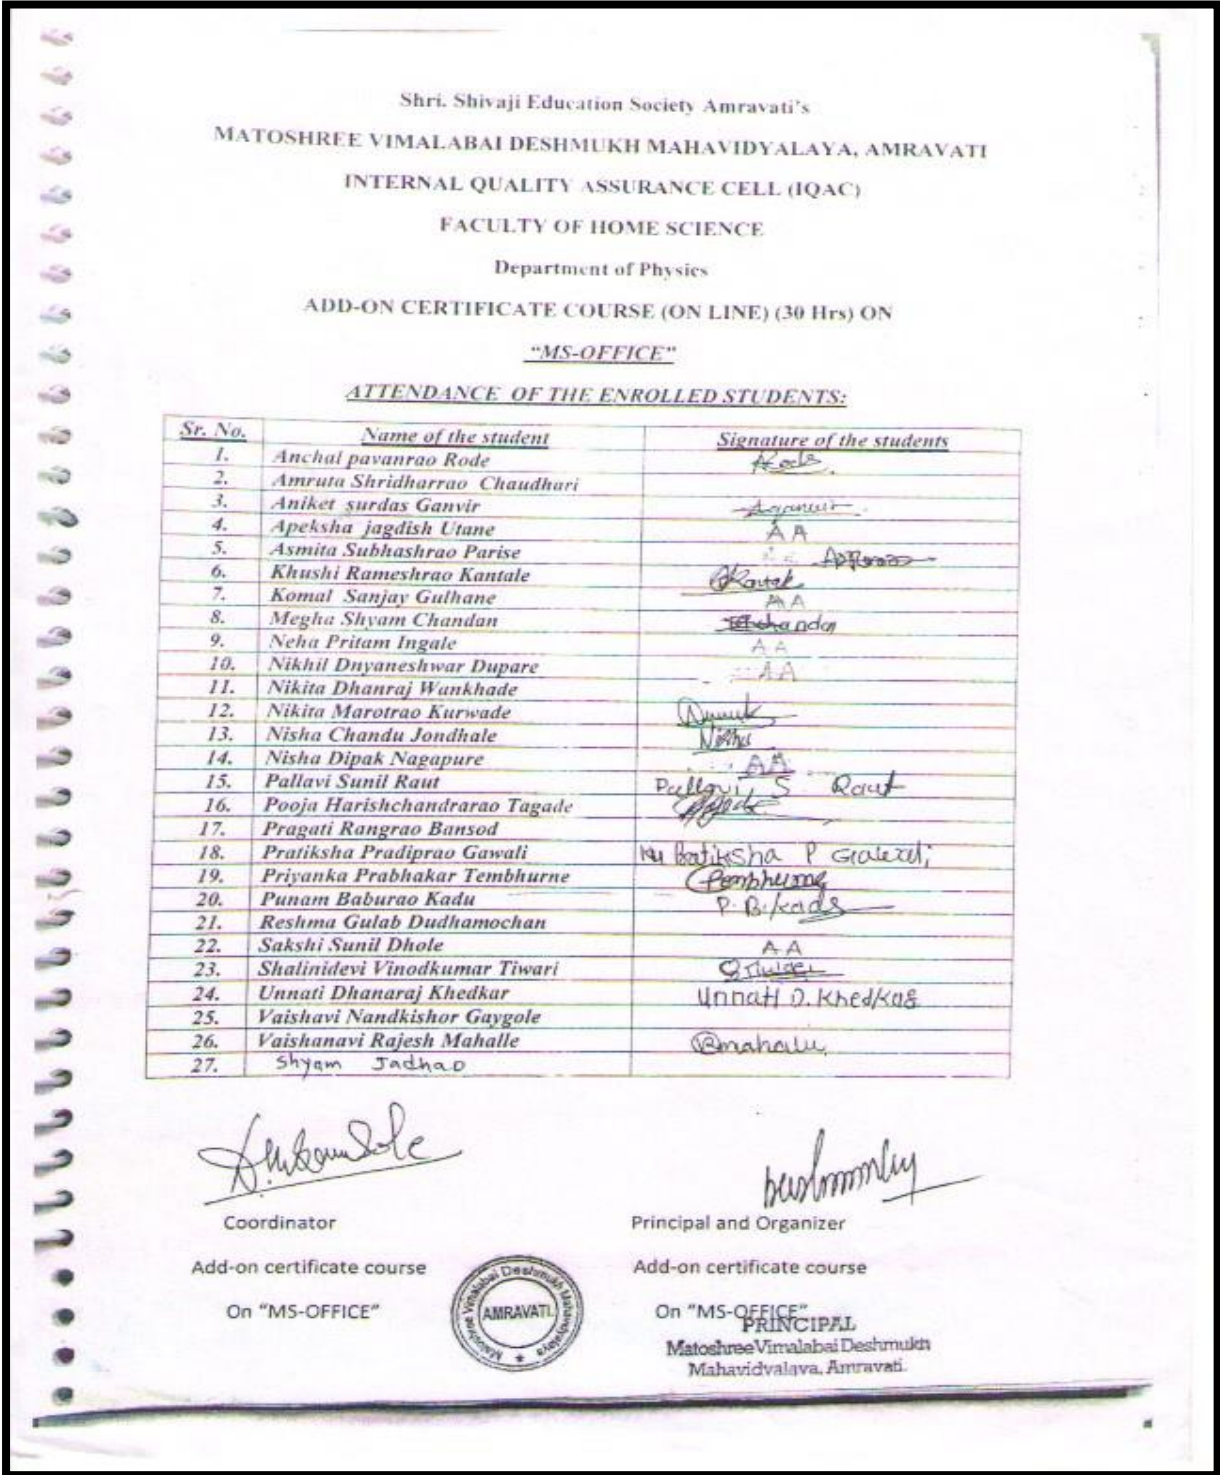 Shri. Shivaji Education Society Amravati's
MATOSHREE VIMALABAI DESHMUKH MAHAVIDYALAYA, AMRAVATI
INTERNAL QUALITY ASSURANCE CELL (IQAC)
FACULTY OF HOME SCIENCE
Department of Physics
ADD-ON CERTIFICATE COURSE (ON LINE) (30 Hrs) ON
"MS-OFFICE"
ATTENDANCE OF THE ENROLLED STUDENTS:
Sr. No. Name of the student Signature of the students
1. Anchal pavanrao Rode
2. Amruta Shridharrao Chaudhari
3. Aniket surdas Ganvir
4. Apeksha jagdish Utane AA
5. Asmita Subhashrao Parise
6. Khushi Rameshrao Kantale
7. Komal Sanjay Gulhane AA
8. Megha Shyam Chandan
9. Neha Pritam Ingale AA
10. Nikhil Dnyaneshwar Dupare AA
11. Nikita Dhanraj Wankhade
12. Nikita Marotrao Kurwade
13. Nisha Chandu Jondhale Nisha
14. Nisha Dipak Nagapure AA
15. Pallavi Sunil Raut Pallavi S Raut
16. Pooja Harishchandrarao Tagade
17. Pragati Rangrao Bansod
18. Pratiksha Pradiprao Gawali P Gawali
19. Priyanka Prabhakar Tembhurne
20. Punam Baburao Kadu P. B. Kadu
21. Reshma Gulab Dudhamochan
22. Sakshi Sunil Dhole AA
23. Shalinidevi Vinodkumar Tiwari
24. Unnati Dhanaraj Khedkar Unnati D. Khedkar
25. Vaishavi Nandkishor Gaygole
26. Vaishanavi Rajesh Mahalle
27. Shyam Jadhao
Coordinator Principal and Organizer
Add-on certificate course Add-on certificate course
On "MS-OFFICE" On "MS-OFFICE"
Matoshree Vimalabai Deshmukh Mahavidyalaya
AMRAVATI
PRINCIPAL
Matoshree Vimalabai Deshmukh
Mahavidyalaya, Amravati.